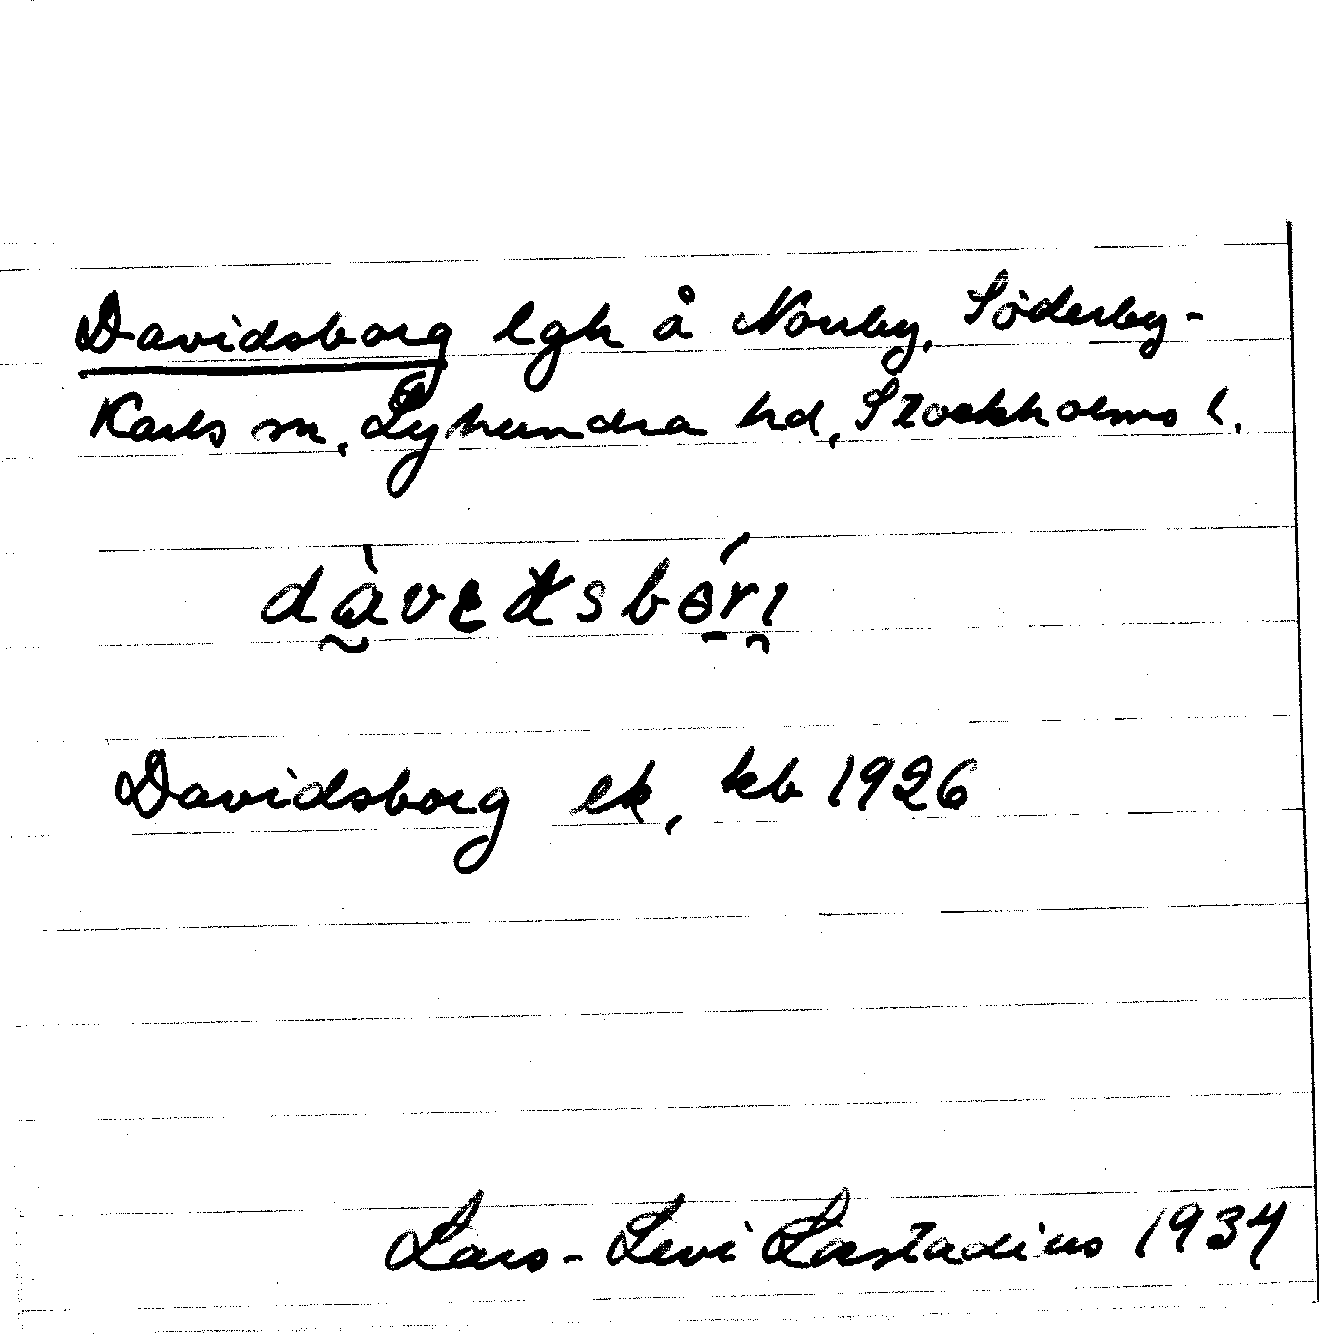 Davidsborg lgh å Norrby, Söderby-
Karls sn, Lyhundra hd, Stockholms l.
dàvedsbórı
Davidsborg ek, kb 1926
Lars-Levi Læstadius 1934